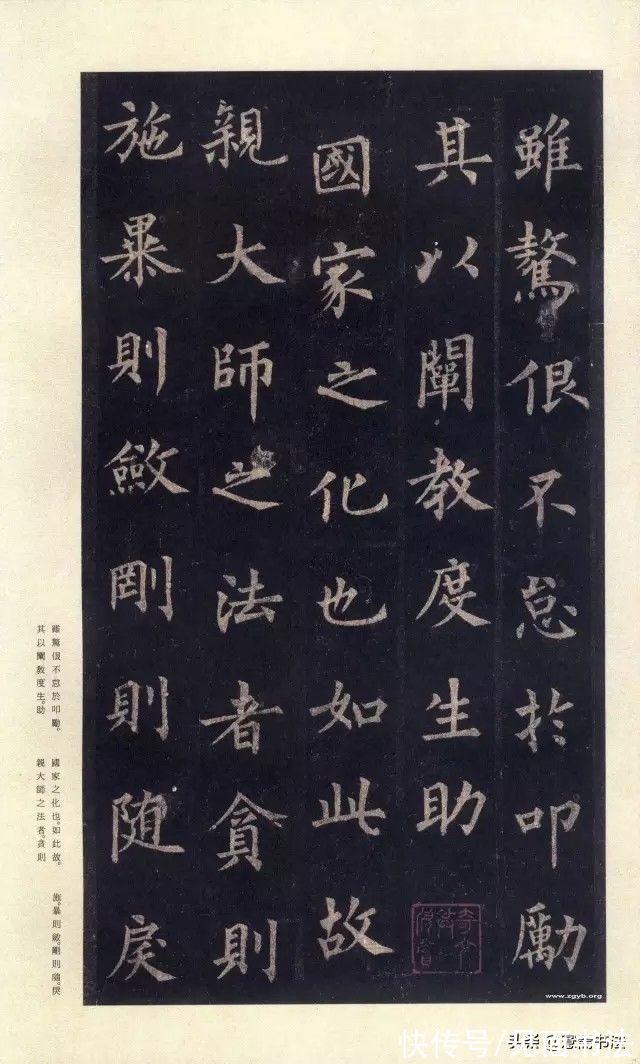 雖驁佷不怠於叩勵
其以闡教度生助
國家之化也如此故
親大師之法者貪則
施暴則斂剛則随戾
雖驁佷不怠於叩勵。
其以闡教度生。助
國家之化也。如此故。
親大師之法者。貪則
施。暴則斂。剛則隨。戾
www.zgyb.org
快传号/
头条